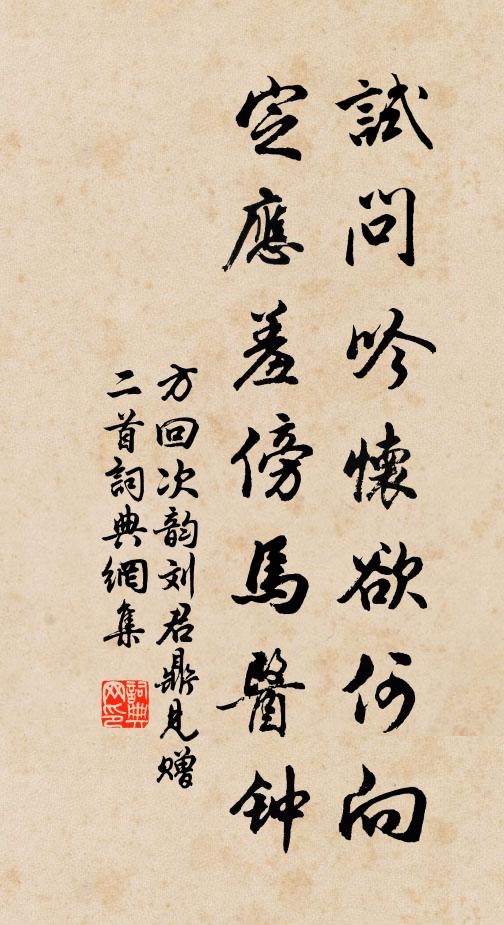 試問吟懷欲何向
定應羞傍馬醫钟
方回次韵刘君鼎見赠
二首詞典網集
詞典网印